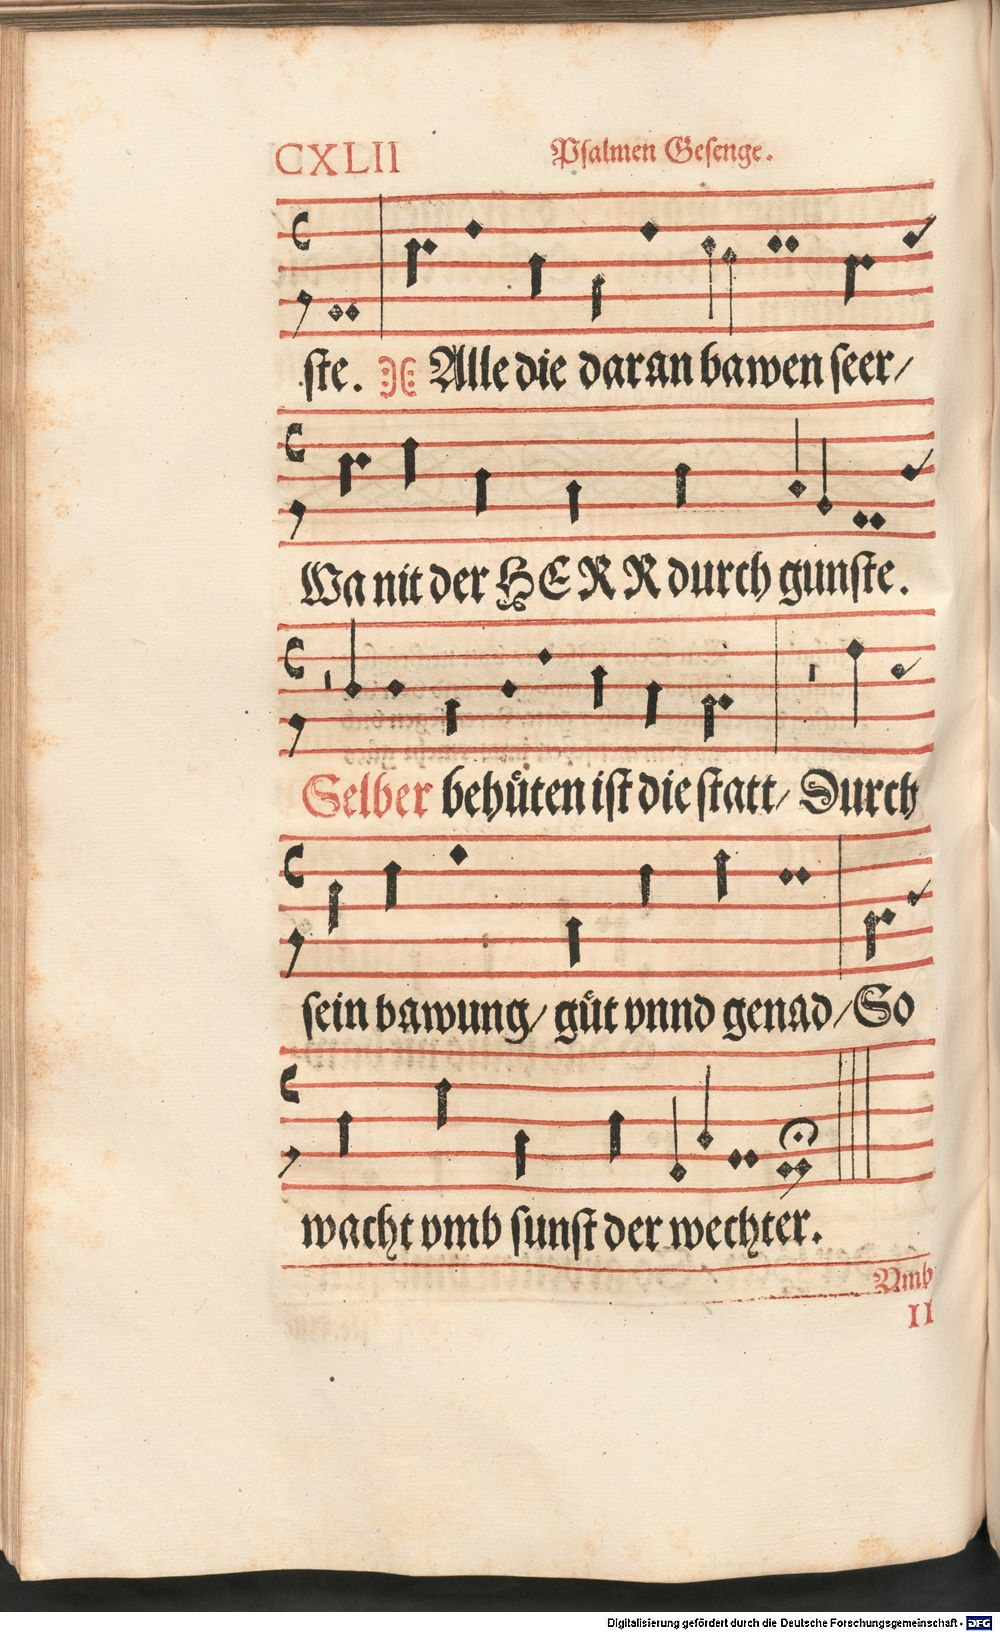 CXLII
Psalmen Gesenge.
ste. Alle die daran bawen seer/
Wa nit der HERR durch gunste.
Selber behuͤten ist die statt/ Durch
sein bawung/ guͤt vnnd genad/ So
wacht vmb sunst der wechter.
Vmb
II
Digitalisierung gefördert durch die Deutsche Forschungsgemeinschaft - DFG